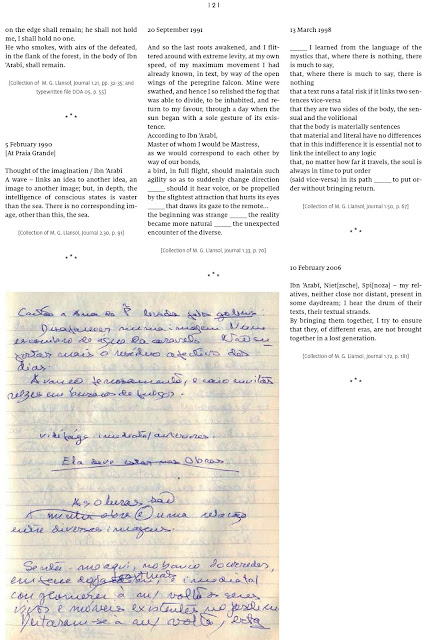 | 2 |
on the edge shall remain; he shall not hold
me, I shall hold no one.
He who smokes, with airs of the defeated,
in the flank of the forest, in the body of Ibn
ʿArabi, shall remain.
[Collection of M. G. Llansol, Journal 1.21, pp. 32-35; and
typewritten file DDA 05, p. 55]
5 February 1990
[At Praia Grande]
Thought of the imagination / Ibn ʿArabi
A wave – links an idea to another idea, an
image to another image; but, in depth, the
intelligence of conscious states is vaster
than the sea. There is no corresponding im-
age, other than this, the sea.
[Collection of M. G. Llansol, Journal 2.30, p. 91]
20 September 1991
And so the last roots awakened, and I flit-
tered around with extreme levity, at my own
speed, of my maximum movement I had
already known, in text, by way of the open
wings of the peregrine falcon. Mine were
swathed, and hence I so relished the fog that
was able to divide, to be inhabited, and re-
turn to my favour, through a day when the
sun began with a sole gesture of its exis-
tence.
According to Ibn ʿArabi,
Master of whom I would be Mastress,
as we would correspond to each other by
way of our bonds,
a bird, in full flight, should maintain such
agility so as to suddenly change direction
_____ should it hear voice, or be propelled
by the slightest attraction that hurts its eyes
_____ that draws its gaze to the remote...
the beginning was strange _____ the reality
became more natural _____ the unexpected
encounter of the diverse.
[Collection of M. G. Llansol, Journal 1.33, p. 70]
13 March 1998
_____ I learned from the language of the
mystics that, where there is nothing, there
is much to say,
that, where there is much to say, there is
nothing
that a text runs a fatal risk if it links two sen-
tences vice-versa
that they are two sides of the body, the sen-
sual and the volitional
that the body is materially sentences
that material and literal have no differences
that in this indifference it is essential not to
link the intellect to any logic
that, no matter how far it travels, the soul is
always in time to put order
(said vice-versa) in its path _____ to put or-
der without bringing return.
[Collection of M. G. Llansol, Journal 1.50, p. 67]
10 February 2006
Ibn ʿArabi, Niet[zsche], Spi[noza] – my rel-
atives, neither close nor distant, present in
some daydream; I hear the drum of their
texts, their textual strands.
By bringing them together, I try to ensure
that they, of different eras, are not brought
together in a lost generation.
[Collection of M. G. Llansol, Journal 1.72, p. 181]
dias.
Ela deve estar nas Obras.
As Obras são
uma relação
entre diversas imagens.
Sentei-me aqui, no banco